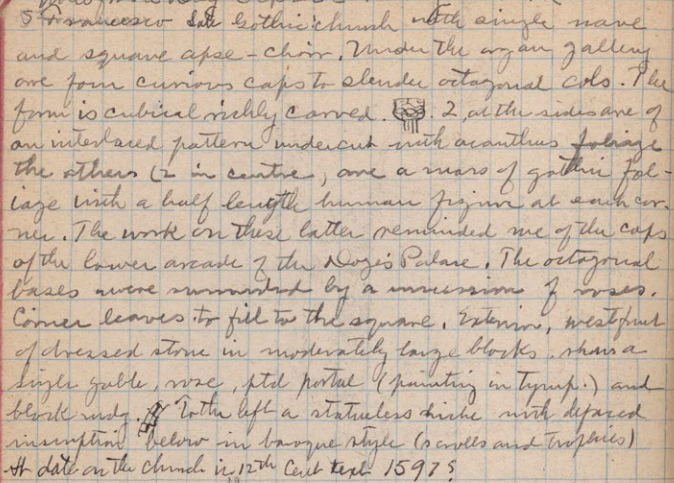 S. Francesco Late Gothic church with single nave
and square apse-choir. Under the organ gallery
are four curious caps to slender octagonal cols. The
form is cubical richly carved. 2 at the sides are of
an interlaced pattern undercut with acanthus foliage
the others (2 in centre, are a mass of gothic fol-
iage with a half length human figure at each cor-
ner. The work on these latter reminded me of the caps
of the lower arcade of the Doge's Palace. The octagonal
bases were surrounded by a succession of roses.
Corner leaves to fill to the square. Exterior, west front
of dressed stone in moderately large blocks, shows a
single gable, rose, ptd portal (painting in tymp.) and
block mdg. To the left a statueless niche with defaced
inscription below in baroque style (scrolls and trophies)
date on the church is 12th Cent 1597?